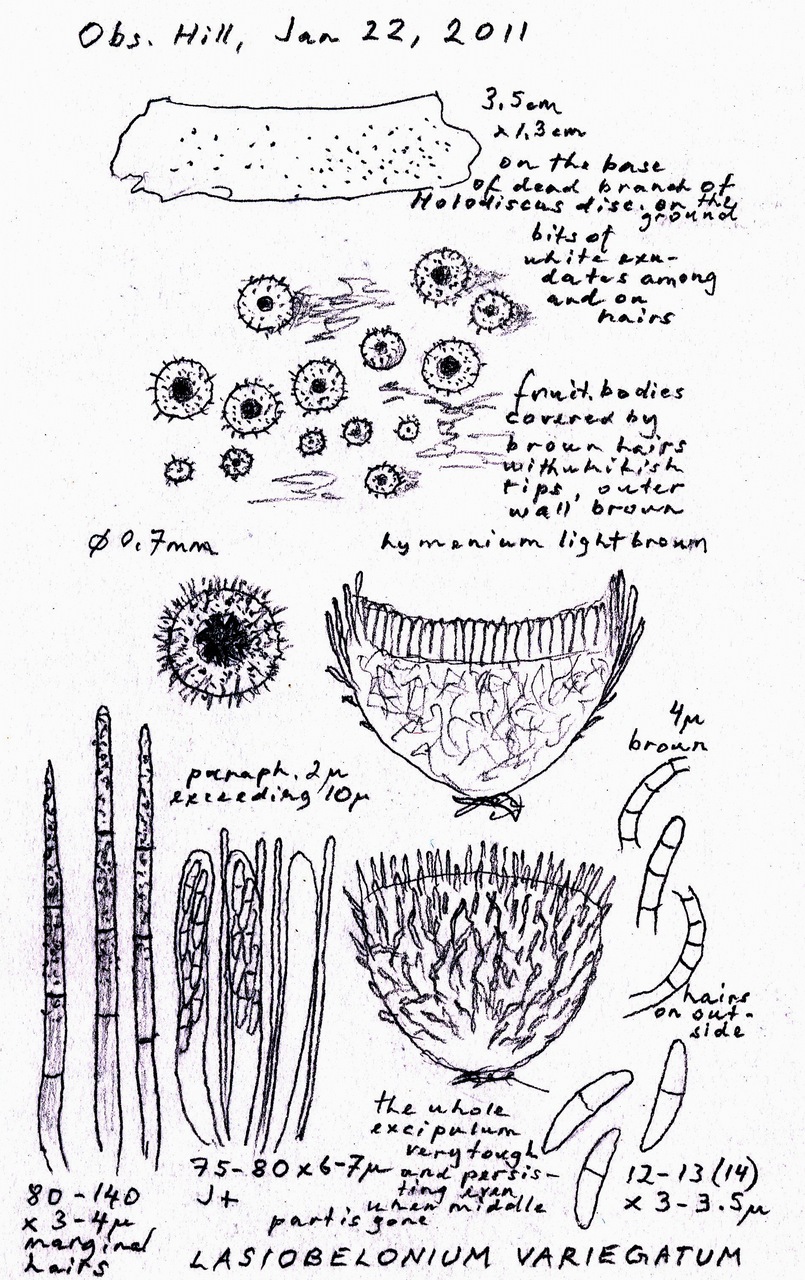 Obs. Hill, Jan 22, 2011
3.5cm
x1.3cm
on the base
of dead branch of
Holodiscus disc. on the
ground
bits of
white exu-
dates among
and on
hairs
fruit.bodies
covered by
brown hairs
with whitish
tips, outer
wall brown
ø 0.7mm
hymenium light brown
4µ
brown
paraph. 2µ
exceeding 10µ
hairs
on out-
side
the whole
excipulum
very tough
and persis-
ting even
when middle
part is gone
75-80x6-7µ
J+
12-13(14)
x 3-3.5µ
80-140
x 3-4µ
marginal
hairs
LASIOBELONIUM VARIEGATUM